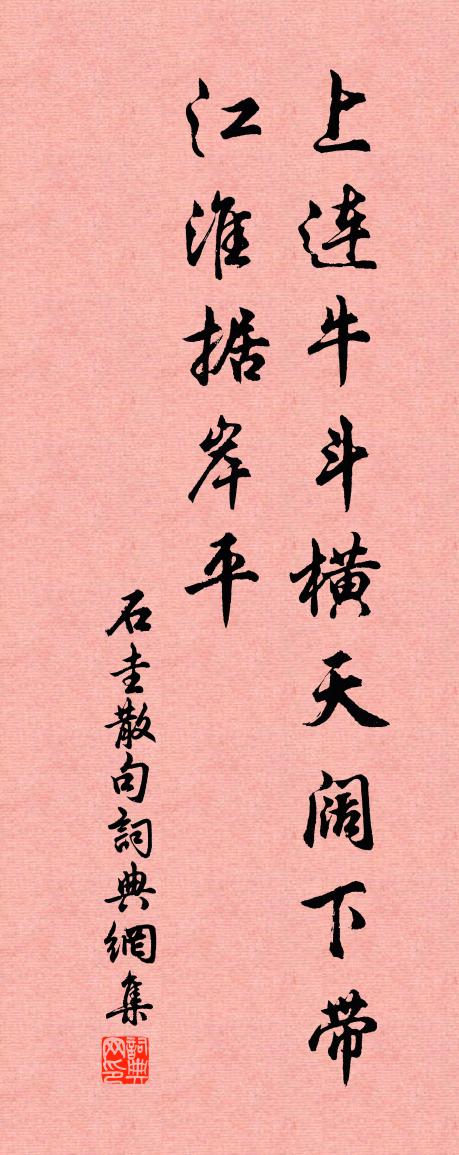 上连牛斗横天阔下带
江淮据岸平
石圭散句詞典網集
詞典网印